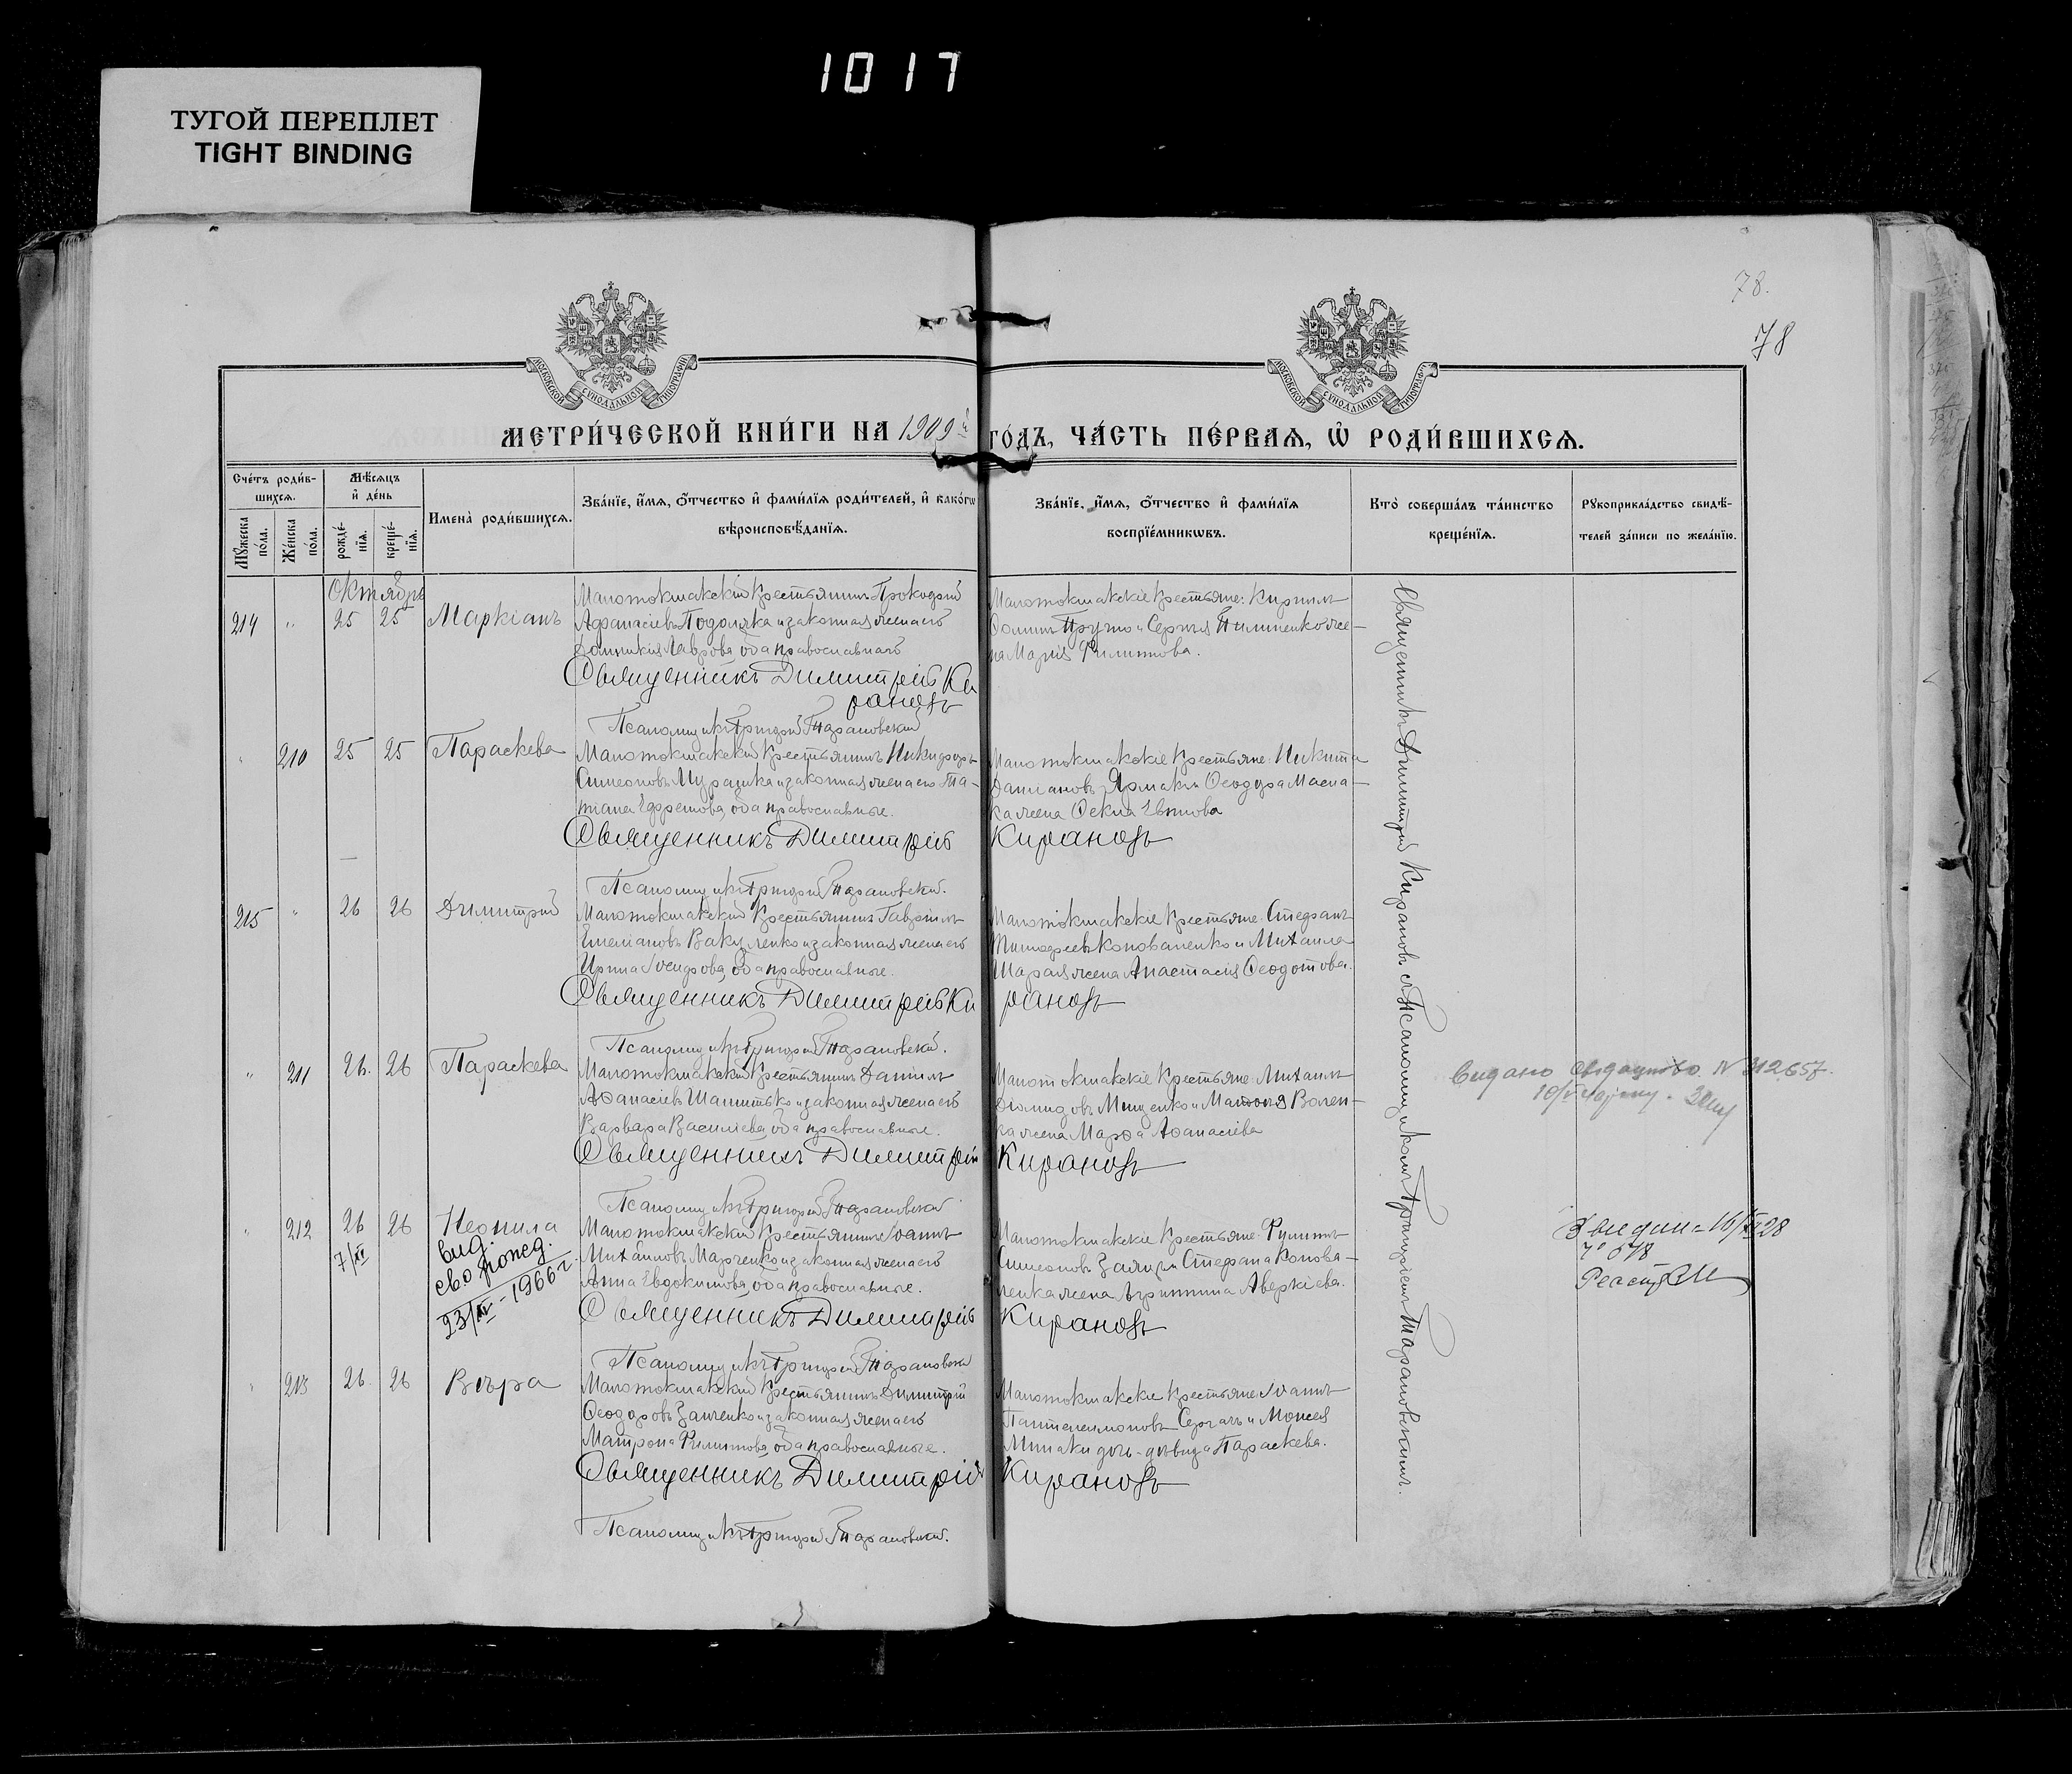 1017
ТУГОЙ ПЕРЕПЛЕТ
TIGHT BINDING
78.
78
МОСКОВСКОЙ СѴНОДАЛЬНОЙ ТИПОГРАФІИ
МОСКОВСКОЙ СѴНОДАЛЬНОЙ ТИПОГРАФІИ
МЕТРИ́ЧЕСКОЙ КНИ́ГИ НА 1909й ГО́ДЪ, ЧА́СТЬ ПЕ́РВАѦ, Ѡ҆ РОДИ́ВШИХСѦ.
Сче́тъ роди́в-
шихсѧ.
Мꙋ́жеска
по́ла.
Же́нска
по́ла.
Мѣ́сѧцъ
и҆ де́нь
рожде́-
нїѧ.
креще́-
нїѧ.
И҆мена̀ роди́вшихсѧ.
Зва́нїе, и҆́мѧ, ѻ҆́тчество и҆ фами́лїѧ роди́телей, и҆ како́гѡ
вѣроисповѣ́данїѧ.
Зва́нїе, и҆́мѧ, ѻ҆́тчество и҆ фами́лїѧ
воспрїе́мникѡвъ.
Кто̀ соверша́лъ та́инство
креще́нїѧ.
Рꙋкоприкла́дство свидѣ́-
телей за́писи по жела́нїю.
Октябрь
214 " 25 25 Маркіанъ
Малотокмакскій крестьянинъ Прокофій
Афанасіевъ Подоляка и законная жена его
Домникія Лаврова, оба православные
Священникъ Димитрій Ки
рановъ
Псаломщикъ Григорій Тарановскій
Малотокмакскіе крестьяне: Кириллъ
Ѳоминъ Пругло и Сергѣя Пилипенко же-
на Марія Филиппова.
" 210 25 25 Параскева
Малотокмакскій крестьянинъ Никифоръ
Симеоновъ Мурашка и законная жена его Та-
тіана Ефремова, оба православные.
Священникъ Димитрій Кирановъ
Псаломщикъ Григорій Тарановскій.
Малотокмакскіе крестьяне: Никита
Даміановъ Ярмакъ и Ѳеодора Масла-
ка жена Ѳекла Евтиова
215 " 26 26 Димитрій
Малотокмакскій крестьянинъ Гавріилъ
Емеліановъ Вакуленко и законная жена его
Ирина Іосифова, оба православные.
Священникъ Димитрій Ки рановъ
Псаломщикъ Григорій Тарановскій.
Малотокмакскіе крестьяне: Стефанъ
Тимофеевъ Коноваленко и Михаила
Шарая жена Анастасія Ѳеодотова.
" 211 26. 26 Параскева
Малотокмакскій крестьянинъ Даніилъ
Аѳанасіевъ Шапитько и законная жена его
Варвара Василіева, оба православные.
Священникъ Димитрій Кирановъ
Псаломщикъ Григорій Тарановскій
Малотокмакскіе крестьяне: Михаилъ
Діомидовъ Мищенко и Матѳея Волен-
ка жена Марѳа Аѳанасіева
Видано свідоцтво. N 312657.
" 212 26 26 Неонила
7/XI
вид.
св о рожд.
23/XI - 1966 г.
Малотокмакскій крестьянинъ Іоаннъ
Михаиловъ Марченко и законная жена его
Анна Евдокимова, оба православные.
Священникъ Димитрій Кирановъ
Псаломщикъ Григорій Тарановскій
Малотокмакскіе крестьяне: Филиппъ
Симеоновъ Заяцъ и Стефана Конова-
ленка жена Агриппина Аверкіева.
" 213 26. 26 Вѣра
Малотокмакскій крестьянинъ Димитрій
Ѳеодоровъ Ганченко и законная жена его
Матрона Филиппова, оба православные.
Священникъ Димитрій Кирановъ
Псаломщикъ Григорій Тарановскій.
Малотокмакскіе крестьяне: Іоаннъ
Пантелеимоновъ Сергачъ и Моисея
Минаки дочь-дѣвица Параскева.
Священникъ Димитрій Кирановъ съ Псаломщикомъ Григоріемъ Тарановскимъ.